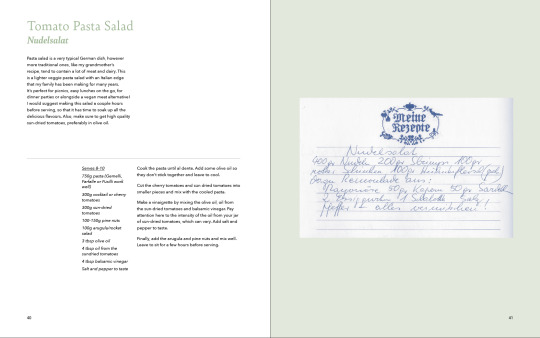 Tomato Pasta Salad
Nudelsalat
Pasta salad is a very typical German dish, however
more traditional ones, like my grandmother's
recipe, tend to contain a lot of meat and dairy. This
is a lighter veggie pasta salad with an Italian edge
that my family has been making for many years.
It's perfect for picnics, easy lunches on the go, for
dinner parties or alongside a vegan meat alternative!
I would suggest making this salad a couple hours
before serving, so that it has time to soak up all the
delicious flavours. Also, make sure to get high quality
sun-dried tomatoes, preferably in olive oil.
Serves 8-10
750g pasta (Gemelli,
Farfalle or Fusilli work
well)
300g cocktail or cherry
tomatoes
300g sun-dried
tomatoes
100-150g pine nuts
100g arugula/rocket
salad
3 tbsp olive oil
4 tbsp oil from the
sundried tomatoes
4 tbsp balsamic vinegar
Salt and pepper to taste
Cook the pasta until al dente. Add some olive oil so
they don't stick together and leave to cool.
Cut the cherry tomatoes and sun dried tomatoes into
smaller pieces and mix with the cooked pasta.
Make a vinaigrette by mixing the olive oil, oil from
the sun-dried tomatoes and balsamic vinegar. Pay
attention here to the intensity of the oil from your jar
of sun-dried tomatoes, which can vary. Add salt and
pepper to taste.
Finally, add the arugula and pine nuts and mix well.
Leave to sit for a few hours before serving.
40
Meine
Rezepte
Nudelsalat
400gr Nudeln 200gr 100gr
Schinken 100gr
aus:
Mayonaise 50gr Kapern 50gr
1 Salz
Pfeffer alles vermischen!
41